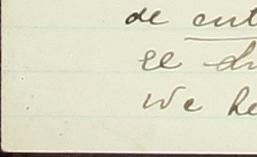 de ent
ge dr
We he